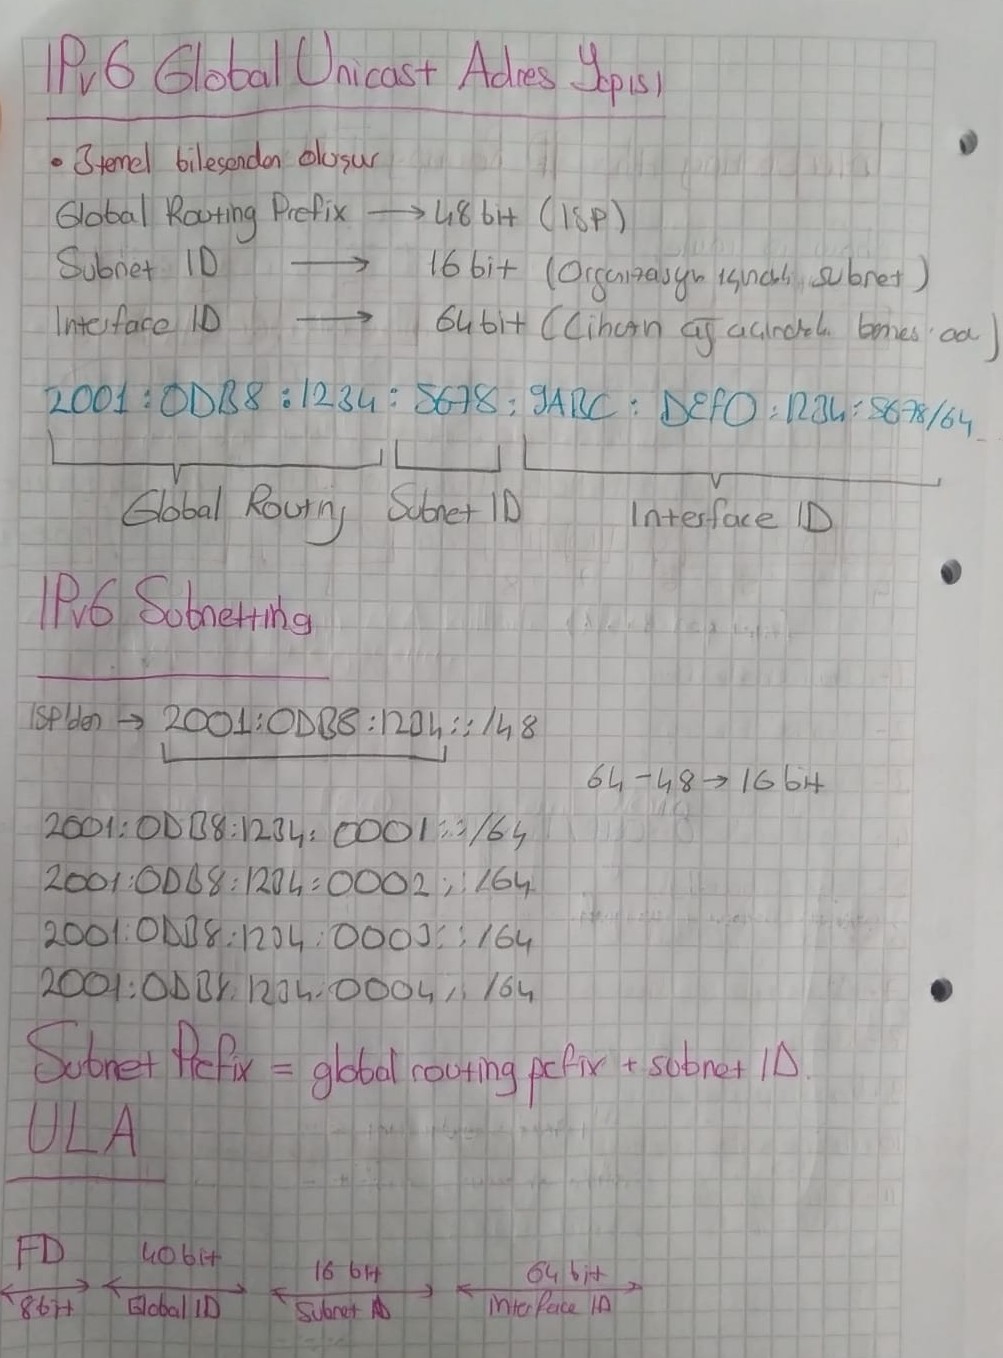 IPv6 Global Unicast Adres Yapısı
• 3 temel bileşenden oluşur
Global Routing Prefix → 48 bit (ISP)
Subnet ID → 16 bit (Organizasyn subnet)
Interface ID → 64 bit (Cihazın ağ)
2001:0DB8:1234:5678:9ABC:DEF0:1234:5678/64
Global Routing Subnet ID Interface ID
IPv6 Subnetting
ISP'den → 2001:0DB8:1234::/48
64-48→16 bit
2001:0DB8:1234:0001::/64
2001:0DB8:1234:0002::/64
2001:0DB8:1234:0003::/64
2001:0DB8:1234:0004::/64
Subnet Prefix = global routing pefix + subnet ID.
ULA
FD 40 bit 16 bit 64 bit
8 bit Global ID Subnet ID Interface ID